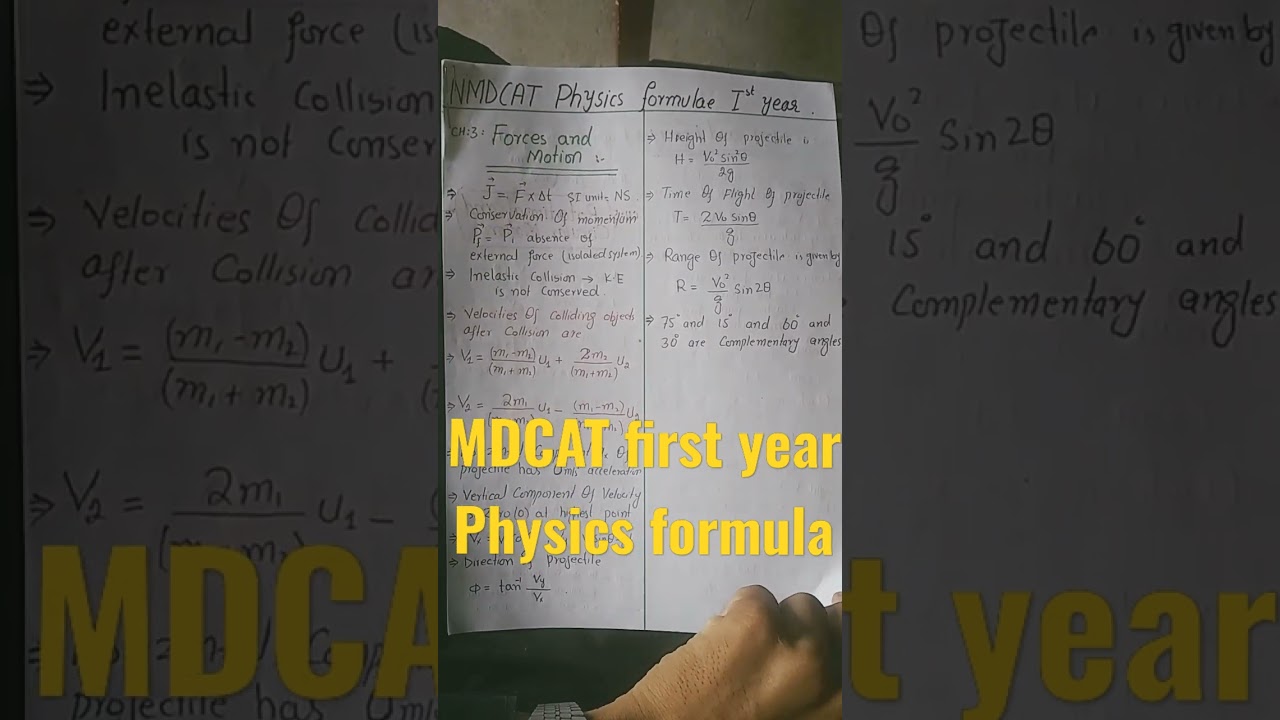 NMDCAT Physics formulae Ist year.
CH:3: Forces and
Motion :-
⇒ J⃗ = F⃗ x Δt SI unit: NS
⇒ Conservation Of momentum
P⃗f = P⃗i absence of
external force (isolated system)
⇒ Inelastic Collision → K.E
is not Conserved.
⇒ Velocities Of Colliding objects
after Collision are
⇒ V1 = (m1-m2)/(m1+m2) U1 + 2m2/(m1+m2) U2
⇒ V2 = 2m1 U1 - (m1-m2) U2
projectile has 0m/s acceleration
⇒ Vertical Component Of Velocity
(0) at highest point
⇒ Direction Of projectile
Φ = tan⁻¹ Vy/Vx
⇒ Height Of projectile is
H = V0² sin²θ/2g
⇒ Time Of Flight Of projectile
T = 2V0 Sinθ/g
⇒ Range Of projectile is given by
R = V0²/g Sin2θ
⇒ 75° and 15° and 60° and
30° are Complementary angles
MDCAT first year
Physics formula
external force (is
⇒ Inelastic Collision
is not Conser
⇒ Velocities Of Collid
after Collision ar
⇒ V1 = (m1-m2)/(m1+m2) U1 +
⇒ V2 = 2m1 U1 -
projectile has 0m/s
MDCAT
Of projectile is given by
V0²/g Sin2θ
15° and 60° and
Complementary angles
t year